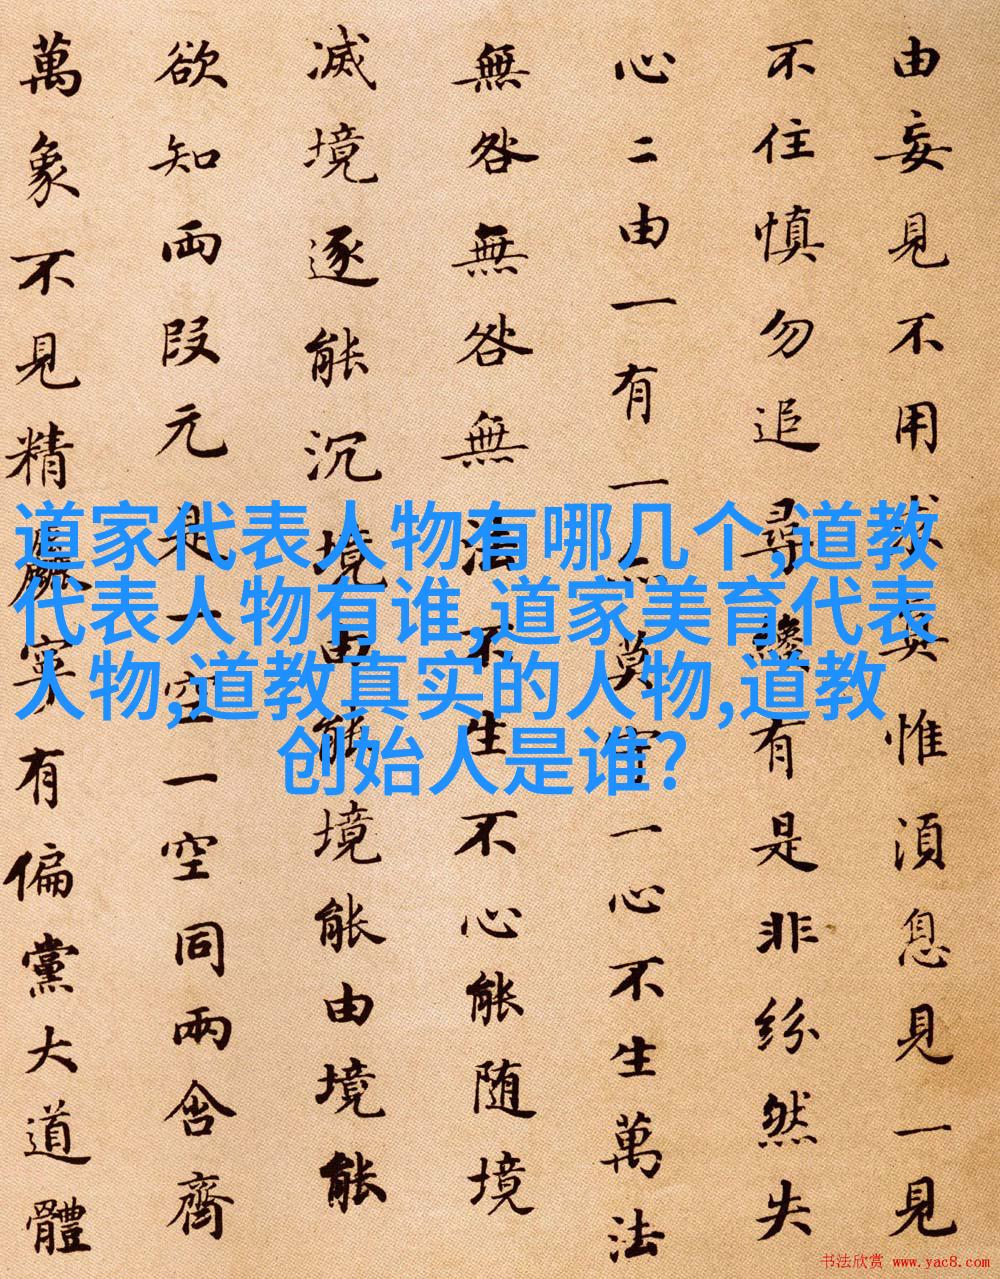 由妄見不用求真惟湏息見一見
不住慎勿追尋纔有是非紛然失
心二由一有一亦莫守一心不生萬法
無咎無咎無法不生不心能随境
滅境逐能沉境由能境能由境能
欲知両段元是一空一空同兩含齊
萬象不見精麤寧有偏黨大道體
道家代表人物有哪几个,道教
代表人物有谁,道家美育代表
人物,道教真实的人物,道教
创始人是谁?
书法欣赏 www.yac8.com